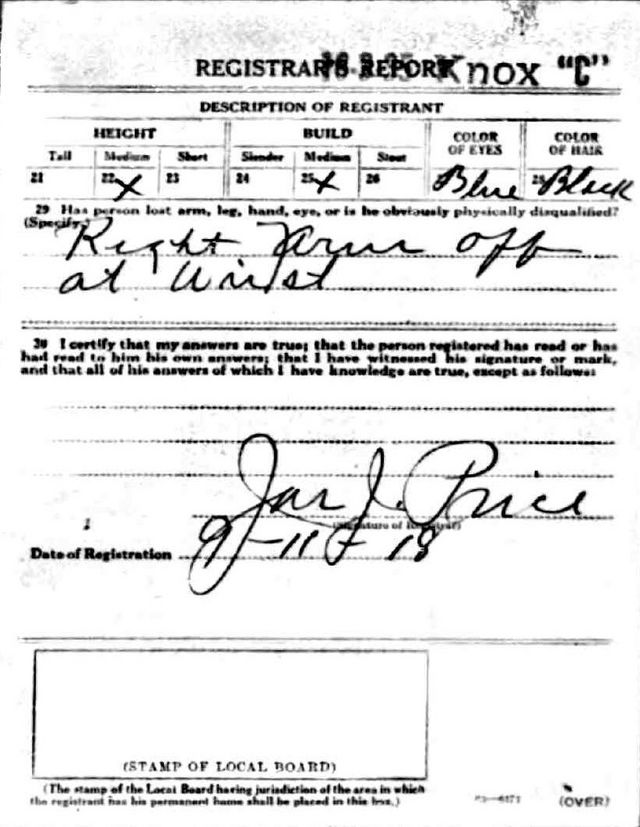 REGISTRAR'S REPORT Knox "C"
DESCRIPTION OF REGISTRANT
HEIGHT BUILD COLOR OF EYES COLOR OF HAIR
Tall Medium Short Slender Medium Stout
21 22 X 23 24 25 X 26 Blue 28 Black
29 Has person lost arm, leg, hand, eye, or is he obviously physically disqualified?
(Specify.) Right arm off
at Wrist
30 I certify that my answers are true; that the person registered has read or has
had read to him his own answers; that I have witnessed his signature or mark,
and that all of his answers of which I have knowledge are true, except as follows:
Jas J. Price
(Signature of Registrar)
Date of Registration 9-11-18
(STAMP OF LOCAL BOARD)
(The stamp of the Local Board having jurisdiction of the area in which
the registrant has his permanent home shall be placed in this box.)
(OVER)